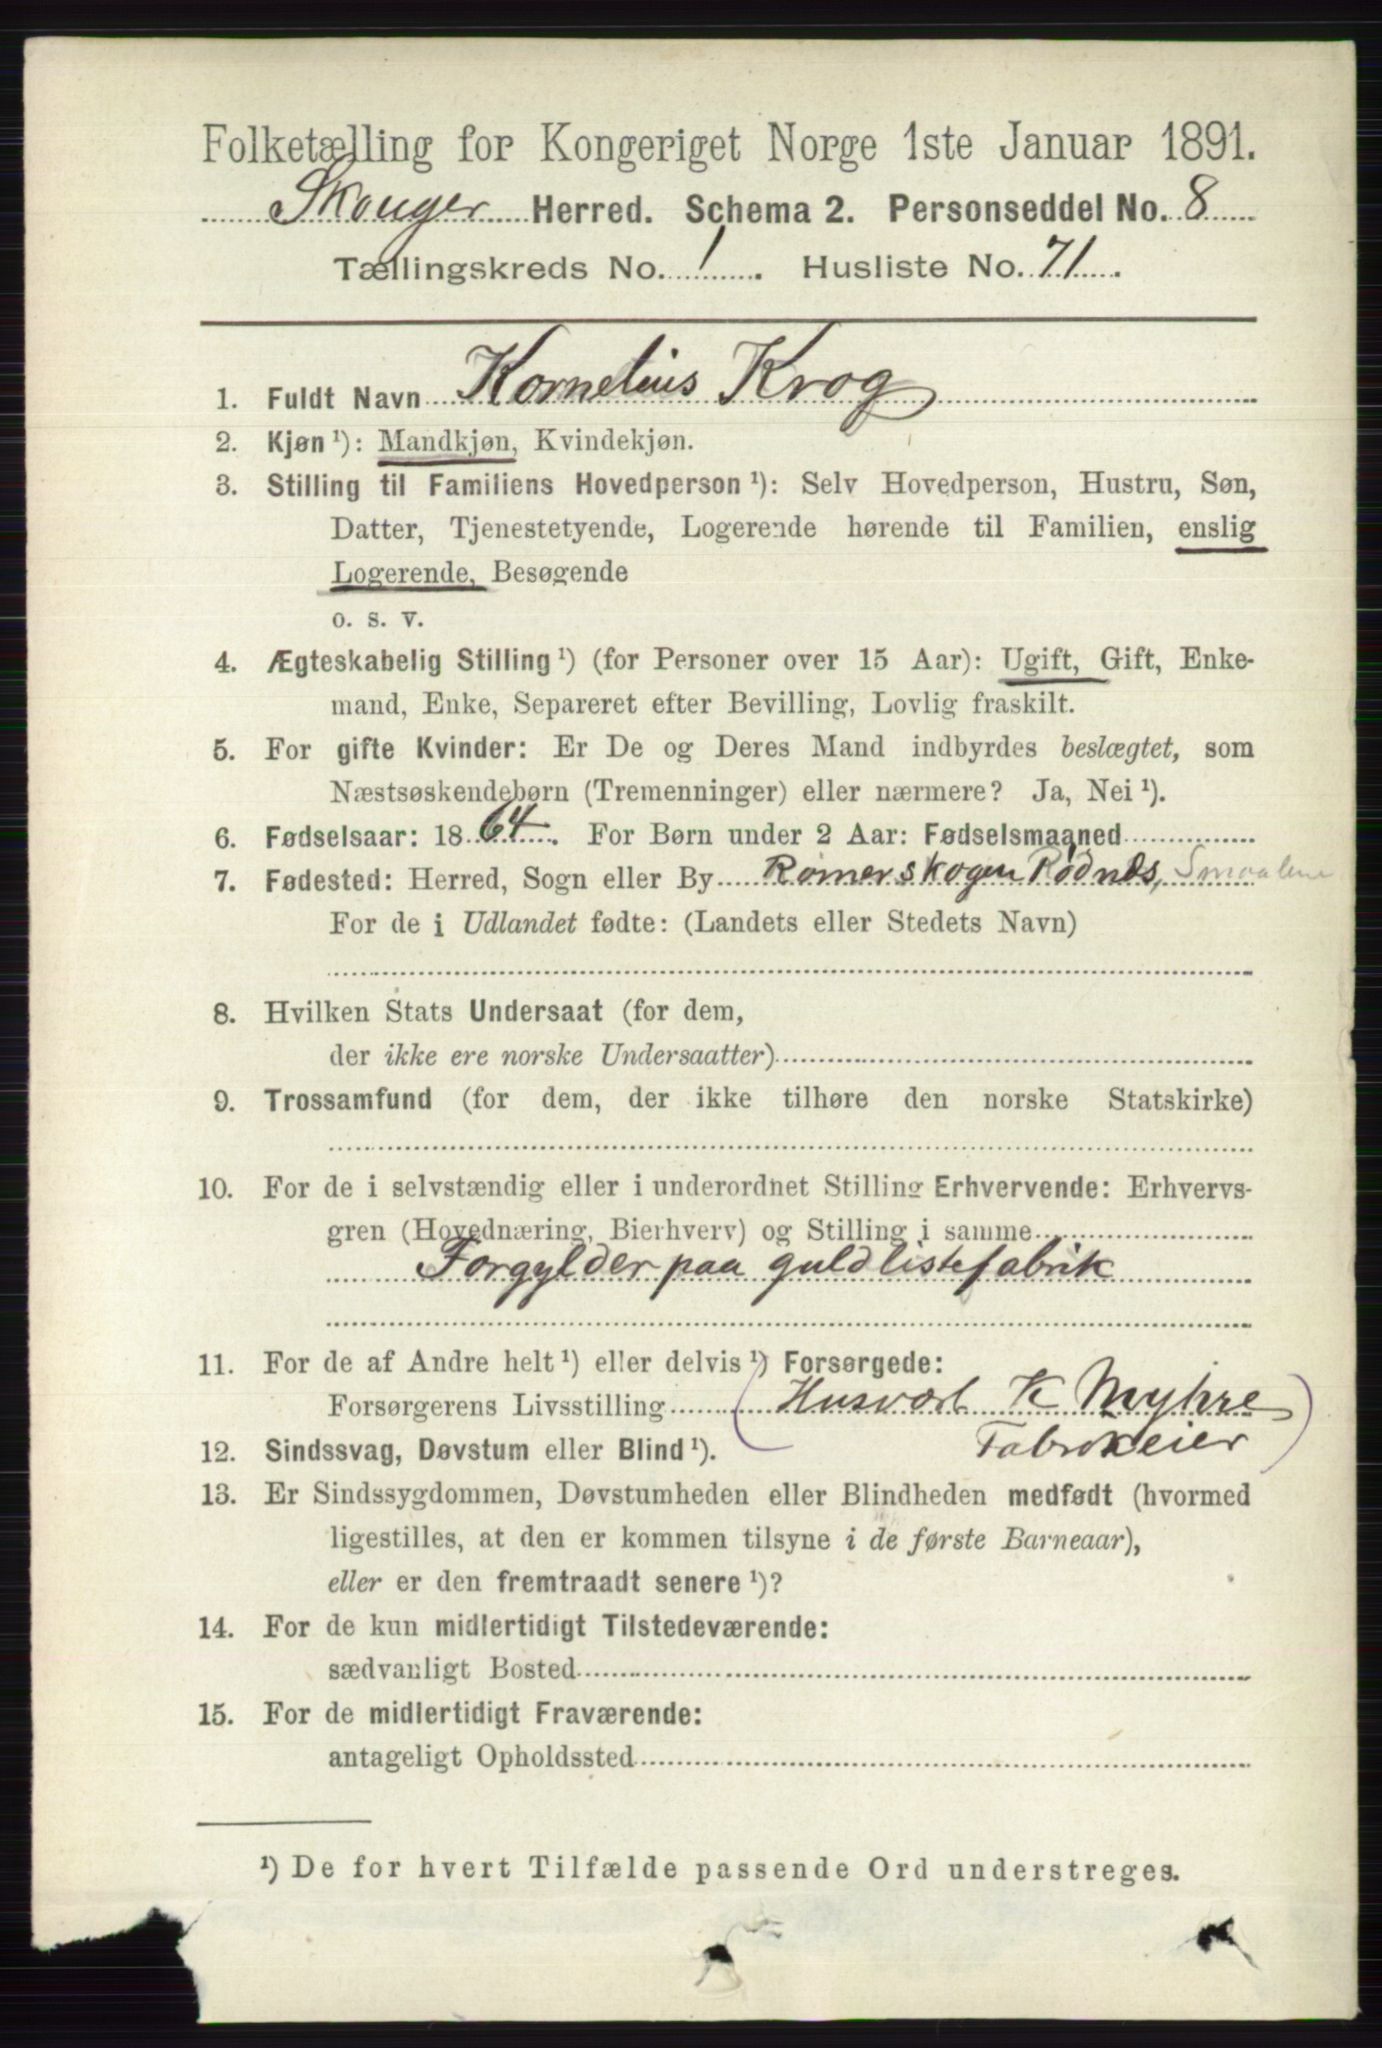 Folketælling for Kongeriget Norge 1ste Januar 1891.
Skouger Herred. Schema 2. Personseddel No. 8
Tællingskreds No. 1. Husliste No. 71.
1. Fuldt Navn Kornelius Krog
2. Kjøn ¹): Mandkjøn, Kvindekjøn.
3. Stilling til Familiens Hovedperson ¹): Selv Hovedperson, Hustru, Søn,
Datter, Tjenestetyende, Logerende hørende til Familien, enslig
Logerende, Besøgende
o. s. v.
4. Ægteskabelig Stilling ¹) (for Personer over 15 Aar): Ugift, Gift, Enke-
mand, Enke, Separeret efter Bevilling, Lovlig fraskilt.
5. For gifte Kvinder: Er De og Deres Mand indbyrdes beslægtet, som
Næstsøskendebørn (Tremenninger) eller nærmere? Ja, Nei ¹).
6. Fødselsaar: 1864. For Børn under 2 Aar: Fødselsmaaned
7. Fødested: Herred, Sogn eller By Rømerskogen Rødnes, Smaalene
For de i Udlandet fødte: (Landets eller Stedets Navn)
8. Hvilken Stats Undersaat (for dem,
der ikke ere norske Undersaatter)
9. Trossamfund (for dem, der ikke tilhøre den norske Statskirke)
10. For de i selvstændig eller i underordnet Stilling Erhvervende: Erhvervs-
gren (Hovednæring, Bierhverv) og Stilling i samme
Forgylder paa guldlistefabrik
11. For de af Andre helt ¹) eller delvis ¹) Forsørgede:
Forsørgerens Livsstilling (Husvært K Myhre
Fabrikeier)
12. Sindssvag, Døvstum eller Blind ¹).
13. Er Sindssygdommen, Døvstumheden eller Blindheden medfødt (hvormed
ligestilles, at den er kommen tilsyne i de første Barneaar),
eller er den fremtraadt senere ¹)?
14. For de kun midlertidigt Tilstedeværende:
sædvanligt Bosted
15. For de midlertidigt Fraværende:
antageligt Opholdssted
¹) De for hvert Tilfælde passende Ord understreges.